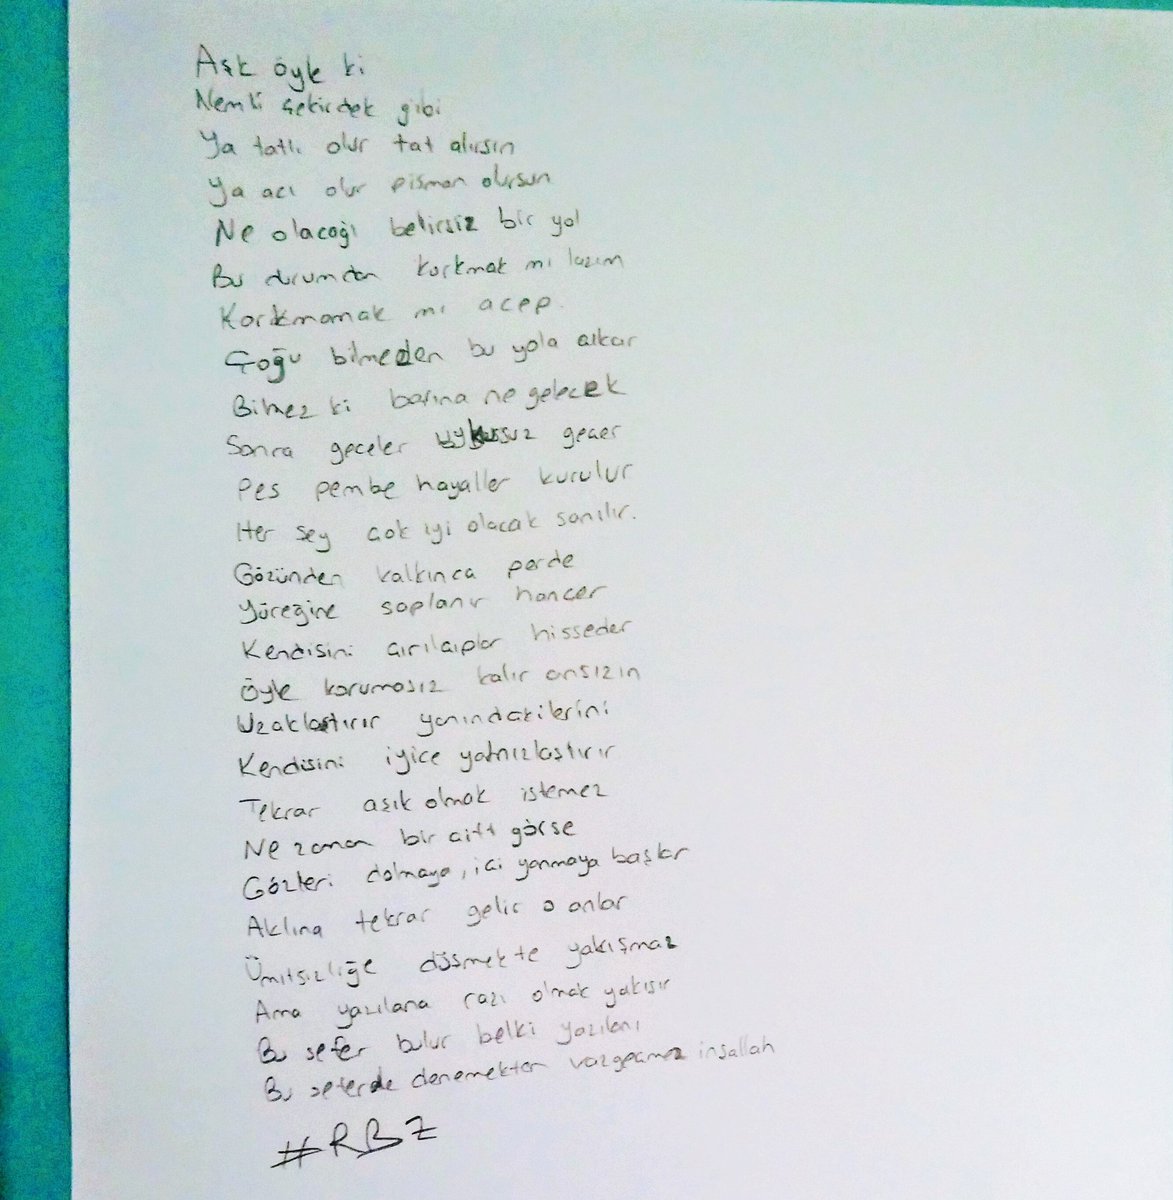 Aşk öyle ki
Nemli çekirdek gibi
Ya tatlı olur tat alırsın
Ya acı olur pisman olursun
Ne olacağı belirsiz bir yol
Bu durumdan korkmak mı lazım
Korkmamak mı acep.
Çoğu bilmeden bu yola çıkar
Bilmez ki basına ne gelecek
Sonra geceler uykusuz geçer
Pes pembe hayaller kurulur
Her sey çok iyi olacak sanılır.
Gözünden kalkınca perde
Yüreğine saplanır hançer
Kendisini çırılçıplar hisseder
Öyle korumasız kalır ansızın
Uzaklastırır yanındakilerini
Kendisini iyice yalnızlaştırır
Tekrar aşık olmak istemez
Ne zaman bir çift görse
Gözleri dolmaya, içi yanmaya başlar
Aklına tekrar gelir o anlar
Ümitsizliğe düsmekte yakışmaz
Ama yazılana razı olmak yakısır
Bu sefer bulur belki yazılanı
Bu seferde denemekten vazgeçmez insallah
#RBZ